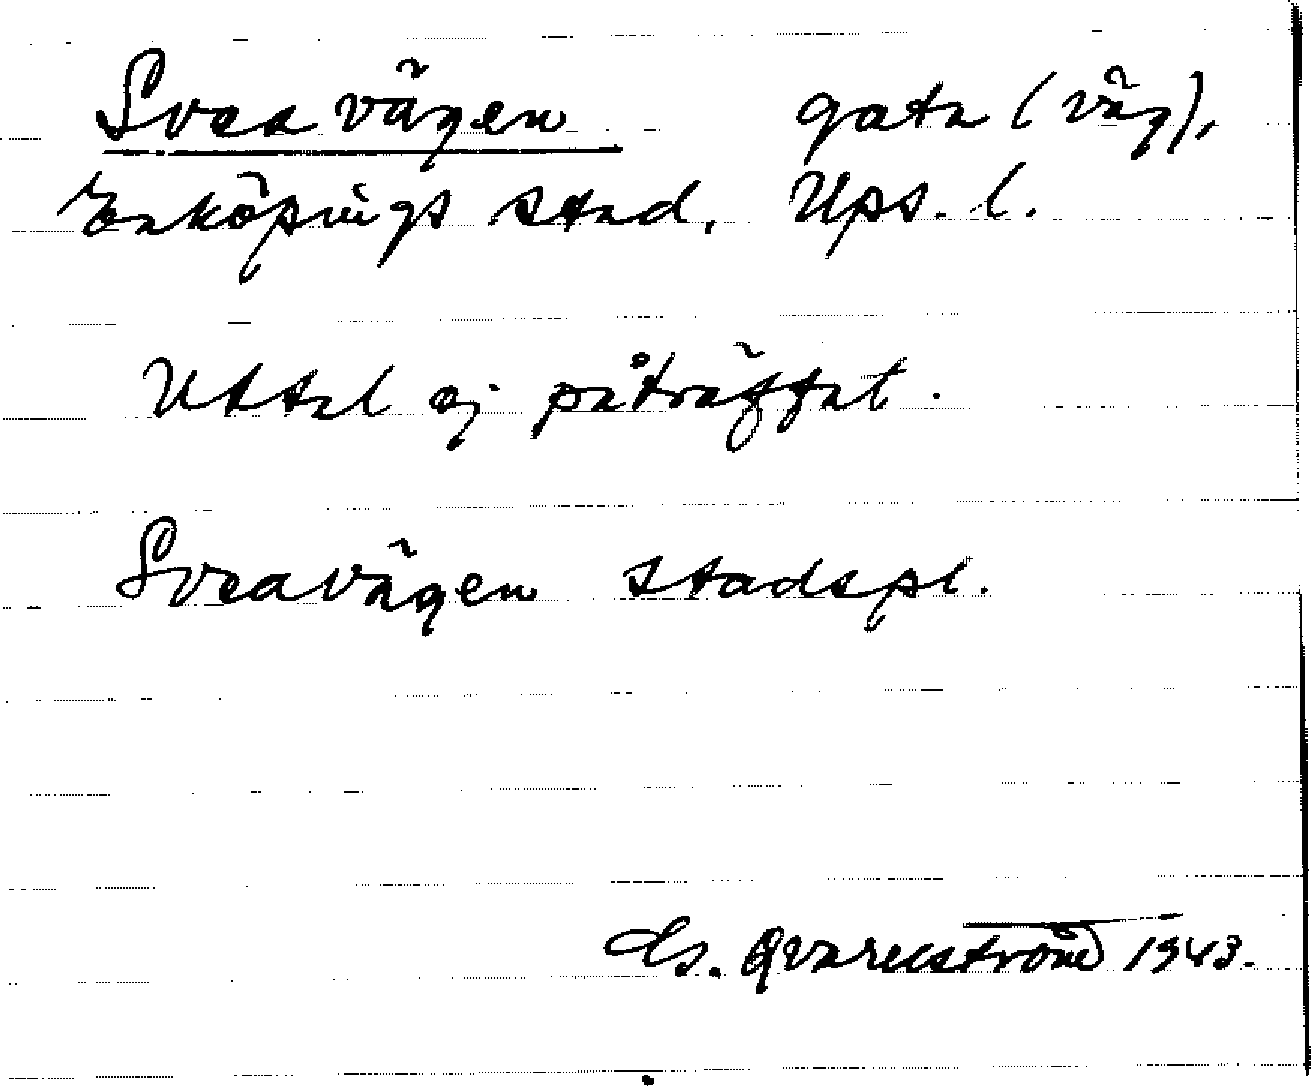 Sveavägen gata (väg),
Enköpings stad, Ups. l.
Uttal ej påträffat.
Sveavägen stadspl.
Qvarnström 1943.